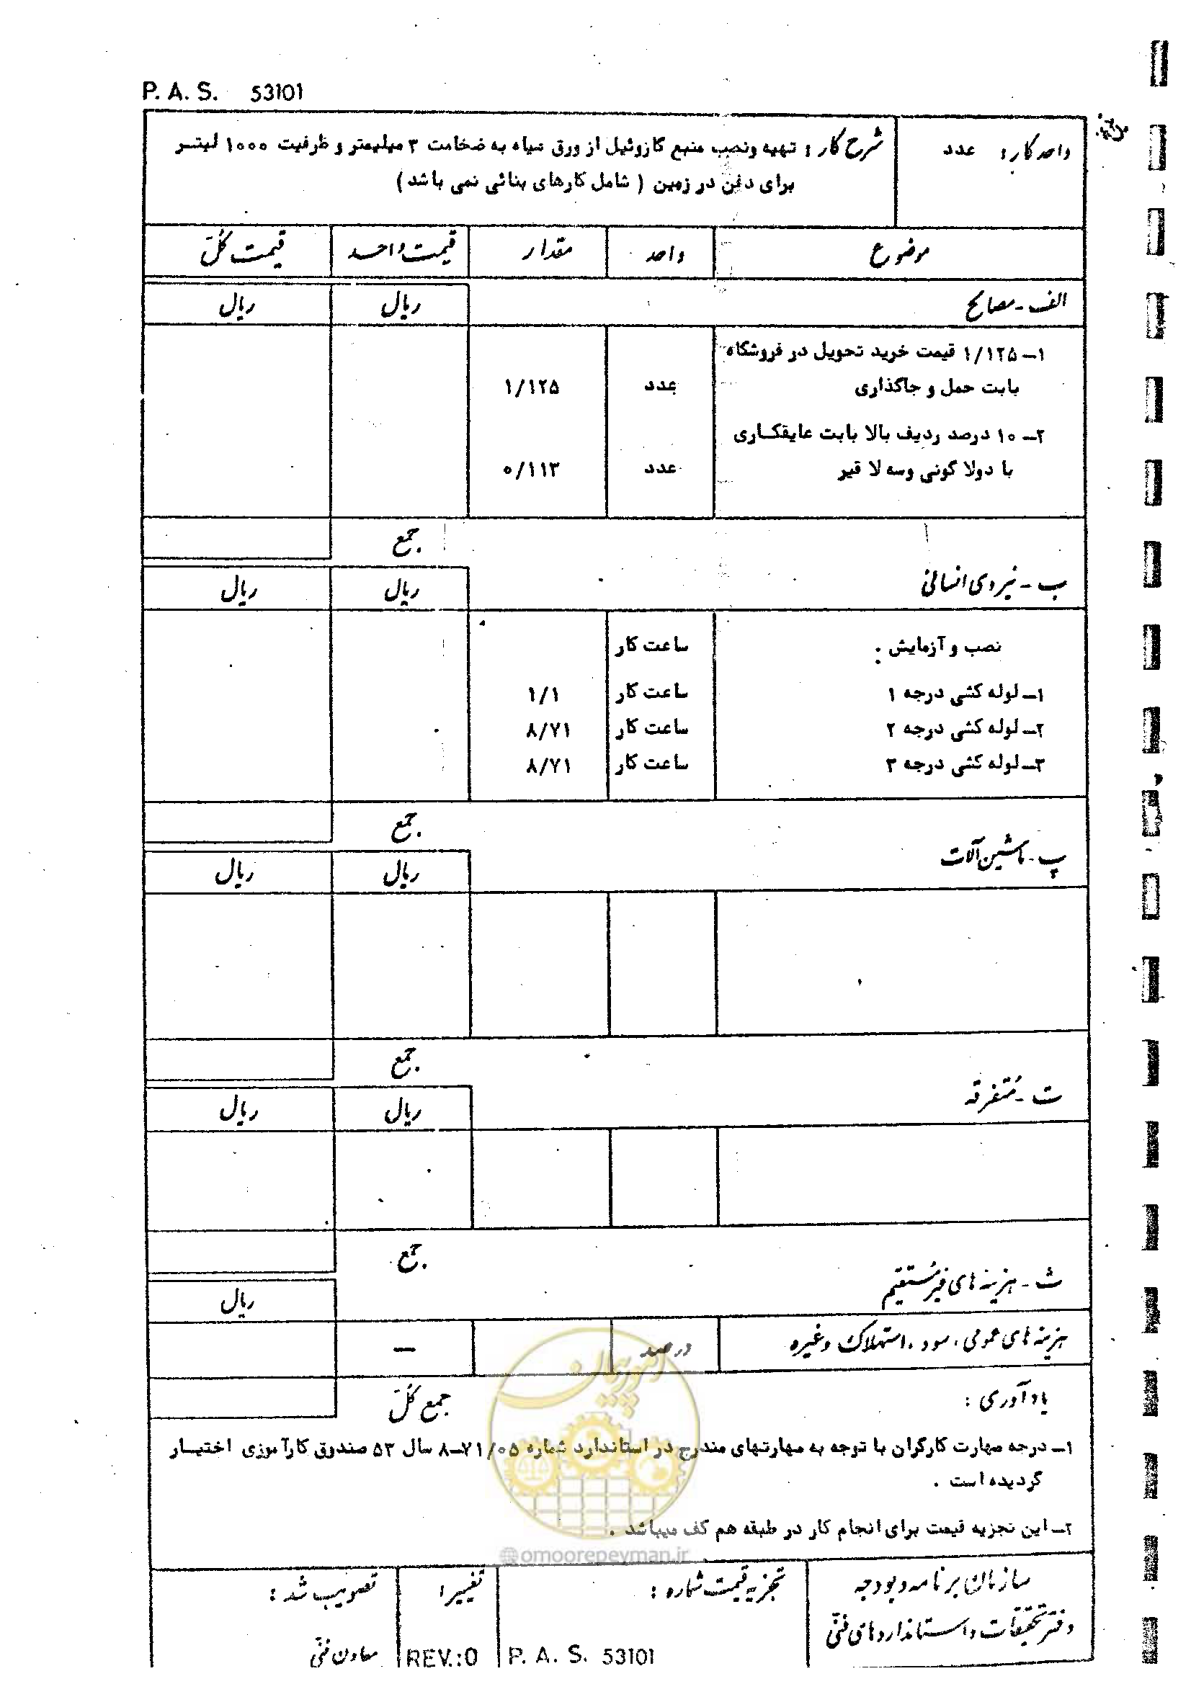 P. A. S. 53101
واحد کار: عدد
شرح کار: تهیه ونصب منبع گازوئیل از ورق سیاه به ضخامت ۳ میلیمتر و ظرفیت ۱۰۰۰ لیتر
برای دفن در زمین ( شامل کارهای بنائی نمی باشد )
موضوع واحد مقدار قیمت واحد قیمت کل
الف - مصالح ریال ریال
۱– ۱/۱۲۵ قیمت خرید تحویل در فروشگاه
بابت حمل و جاگذاری عدد ۱/۱۲۵
۲– ۱۰ درصد ردیف بالا بابت عایقکاری
با دولا گونی وسه لا قیر عدد ۰/۱۱۳
جمع
ب - نیروی انسانی ریال ریال
نصب و آزمایش : ساعت کار
۱– لوله کشی درجه ۱ ساعت کار ۱/۱
۲– لوله کشی درجه ۲ ساعت کار ۸/۷۱
۳– لوله کشی درجه ۳ ساعت کار ۸/۷۱
جمع
پ - ماشین آلات ریال ریال
جمع
ت - متفرقه ریال ریال
جمع
ث - هزینه های غیرمستقیم ریال
هزینه های عمومی ، سود ، استهلاک وغیره درصد —
جمع کل
یادآوری :
۱– درجه مهارت کارگران با توجه به مهارتهای مندرج در استاندارد شماره ۷۱/۰۵–۸ سال ۵۳ صندوق کارآموزی اختیار
گردیده است .
۲– این تجزیه قیمت برای انجام کار در طبقه هم کف میباشد .
امور پیمان
@omoorepeyman.ir
سازمان برنامه و بودجه
دفتر تحقیقات و استانداردهای فنی
تجزیه قیمت شماره :
P. A. S. 53101
تغییر
REV.:0
تصویب شد :
معاون فنی